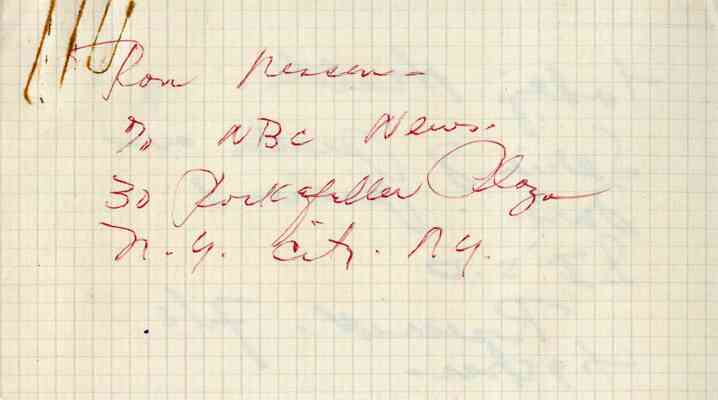 Ron Nessen -
% NBC News.
30 Rockefeller Plaza
N.Y. City. N.Y.